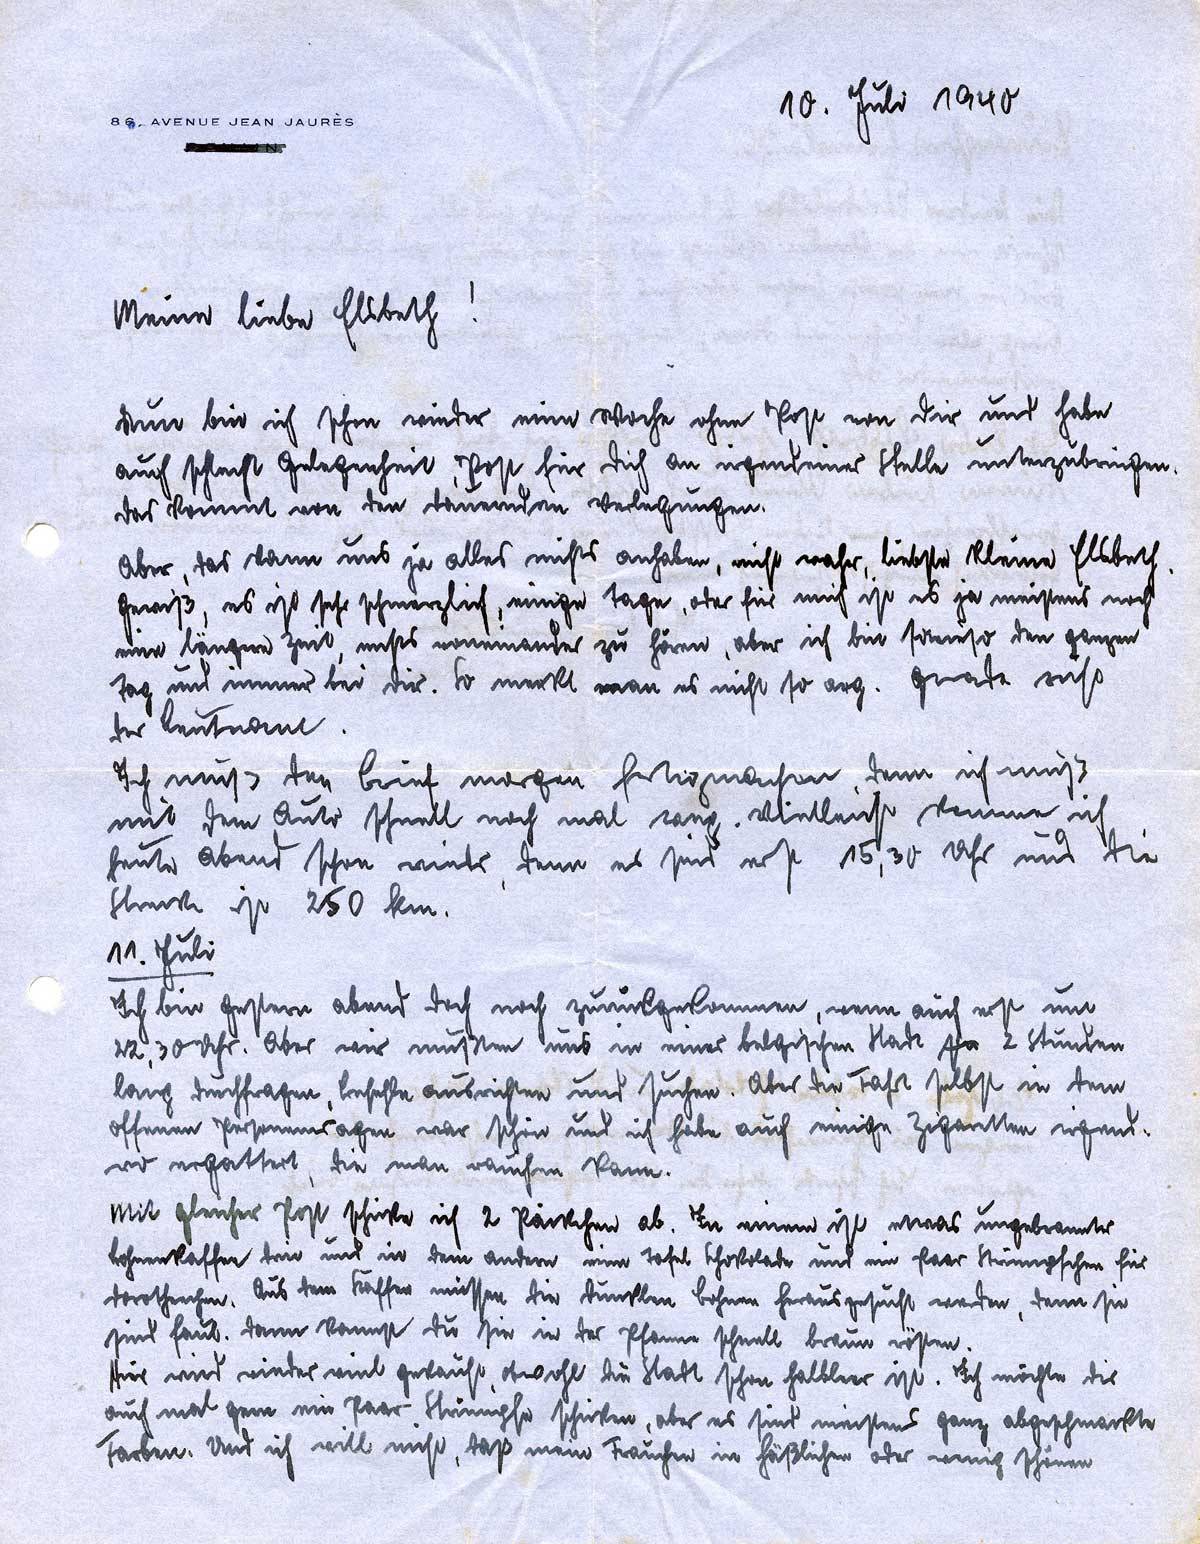 86, AVENUE JEAN JAURÈS
10. Juli 1940
Meine liebe Elsbeth !
Nun bin ich schon wieder eine Woche ohne Post von Dir und habe
auch schlecht Gelegenheit, Post für Dich an irgendeiner Stelle unterzubringen.
Das kommt von den dauernden Verlegungen.
Aber, das kann uns ja alles nichts anhaben, nicht wahr, liebste kleine Elsbeth.
Gewiß, es ist sehr schmerzlich, einige Tage, oder für mich ist es ja meistens noch
eine längere Zeit, nichts voneinander zu hören, aber ich bin sowieso den ganzen
Tag und immer bei Dir. So merkt man es nicht so arg. Grade ruft
der Leutnant.
Ich muß den Brief morgen fertigmachen, denn ich muß
mit dem Auto schnell noch mal weg. Vielleicht komme ich
heute Abend schon wieder, denn es sind erst 15,30 Uhr und die
Strecke ist 250 km.
11. Juli
Ich bin gestern abend doch noch zurückgekommen, wenn auch erst um
22,30 Uhr. Aber wir mußten uns in einer belgischen Stadt 2 Stunden
lang durchfragen, Befehle ausrichten und suchen. Aber die Fahrt selbst in dem
offenen Personenwagen war schön und ich habe auch einige Zigaretten irgend-
wo ergattert, die man rauchen kann.
Mit gleicher Post schicke ich 2 Päckchen ab. In einem ist etwas ungebrannter
Bohnenkaffee drin und in dem andern eine Tafel Schokolade und ein Paar Strümpfchen für
Dorothechen. Aus dem Kaffee müssen die dunklen Bohnen herausgesucht werden, denn sie
sind faul. Dann kannst Du sie in der Pfanne schnell braun rösten.
Hier wird wieder viel gekauft, obwohl die Stadt schon halbleer ist. Ich möchte Dir
auch mal gern ein Paar Strümpfe schicken, aber es sind meistens ganz abgeschmackte
Farben. Und ich will nicht, daß mein Frauchen in häßlichen oder wenig schönen